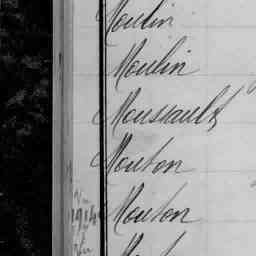 Moulin
Moulin
Moussault
Mouton
1914 Mouton